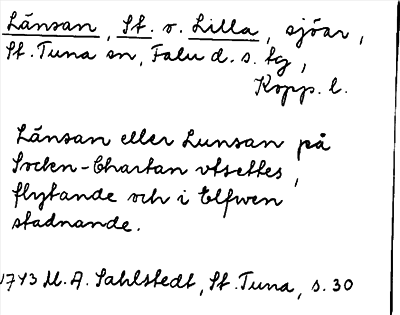 Länsan, St. o. Lilla, sjöar,
St. Tuna sn, Falu d. s. tg,
Kopp. l.
Länsan eller Lunsan på
Socken-Chartan utsettes,
flytande och i Elfwen
stadnande.
1743 M. A. Sahlstedt, St. Tuna, s. 30